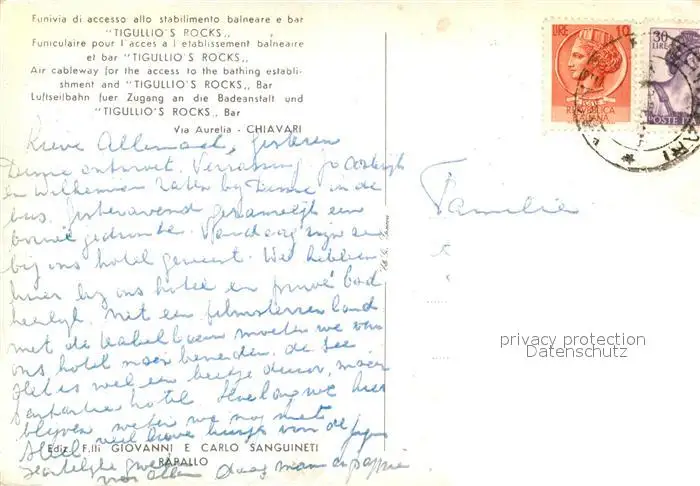 Funivia di accesso allo stabilimento balneare e bar
"TIGULLIO'S ROCKS„
Funiculaire pour l'acces a l'etablissement balneaire
et bar "TIGULLIO'S ROCKS„
Air cableway for the access to the bathing establi-
shment and "TIGULLIO'S ROCKS„ Bar
Luftseilbahn fuer Zugang an die Badeanstalt und
"TIGULLIO'S ROCKS„ Bar
Via Aurelia - CHIAVARI
LIRE 10
REPVBBLICA
ITALIANA
30
LIRE
POSTE ITA
Lieve Allemaal, gisteren
ontmoet. Verrassing.
en Willemien zaten bij in de
bus. gezamelijk een
borrel gedronken. Vandaag zijn ze
bij ons hotel geweest. We hebben
hier bij ons hotel en privé bad
heerlijk. Net een filmsterren land
met de kabelbaan moeten we van
ons hotel naar beneden. de zee
Het is wel een beetje duur, maar
hotel. Hoelang we hier
blijven weten we nog niet
veel lieve
van allen daag mam en pappie
Familie
Ediz. F.lli GIOVANNI E CARLO SANGUINETI
RAPALLO
privacy protection
Datenschutz